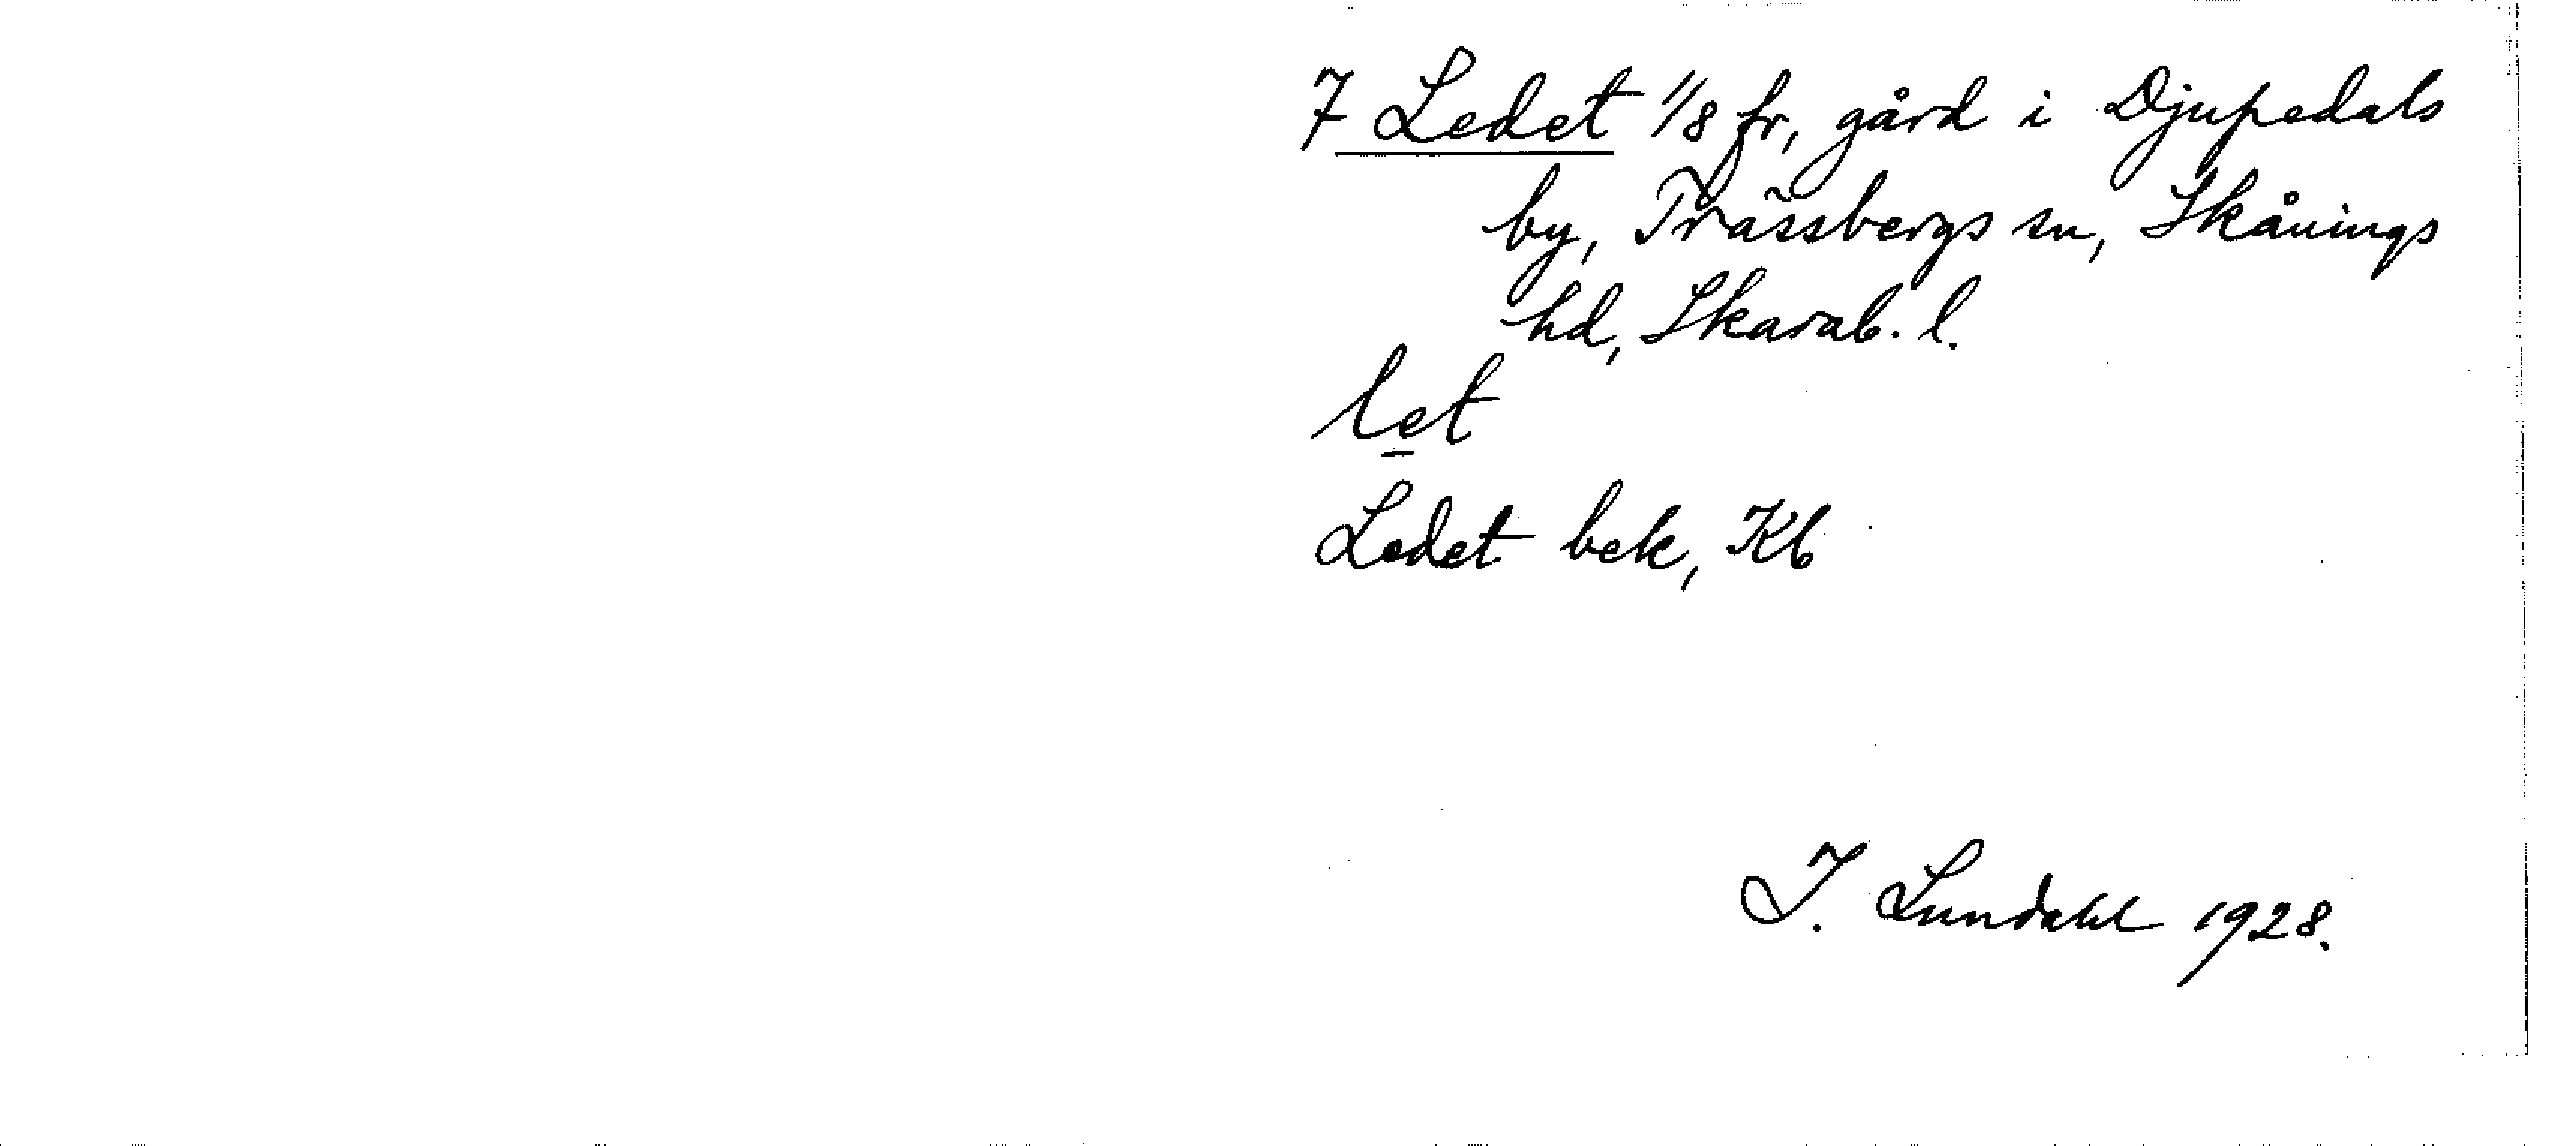 7 Ledet 1/8 fr, gård i Djupedals
by, Trässbergs sn, Skånings
hd, Skarab. l.
let
Ledet bek, Kb
I. Lundahl 1928.